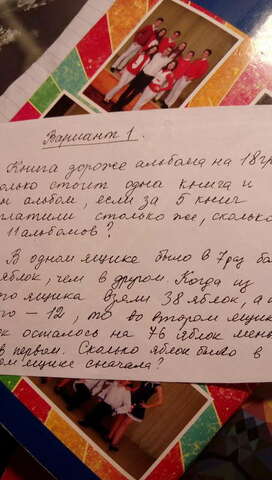 Вариант 1.
Книга дороже альбома на 18гр
олько стоит одна книга и
н альбом, если за 5 книг
платили столько же, сколько
11альбомов?
В одном ящике было в 7раз бол
яблок, чем в другом. Когда из
го ящика взяли 38 яблок, а и
го - 12, то во втором ящик
ок осталось на 76 яблок мень
в первом. Сколько яблок было в
ом ящике сначала?